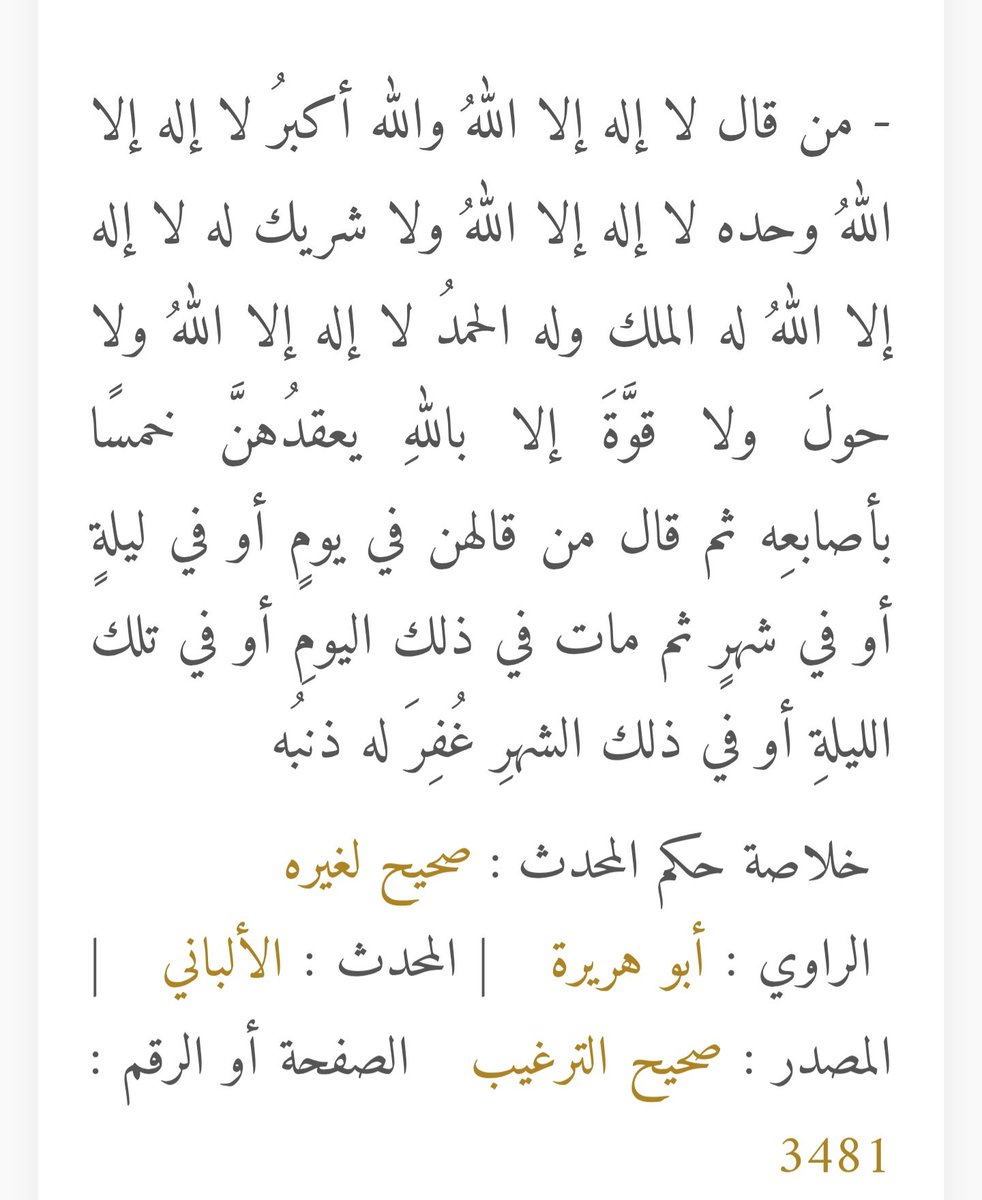 - من قال لا إله إلا اللهُ والله أكبرُ لا إله إلا
اللهُ وحده لا إله إلا اللهُ ولا شريك له لا إله
إلا اللهُ له الملك وله الحمدُ لا إله إلا اللهُ ولا
حولَ ولا قوَّةَ إلا باللهِ يعقدُهنَّ خمسًا
بأصابعِه ثم قال من قالهن في يومٍ أو في ليلةٍ
أو في شهرٍ ثم مات في ذلك اليومِ أو في تلك
الليلةِ أو في ذلك الشهرِ غُفِرَ له ذنبُه
خلاصة حكم المحدث : صحيح لغيره
الراوي : أبو هريرة | المحدث : الألباني |
المصدر : صحيح الترغيب الصفحة أو الرقم :
3481